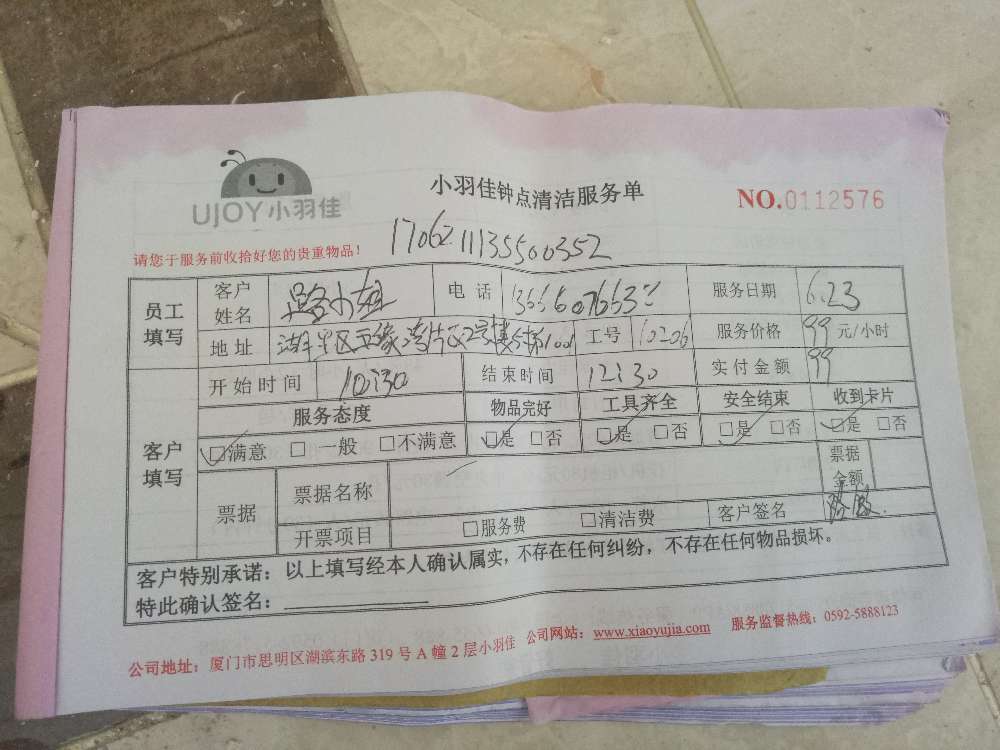 UJOY小羽佳
小羽佳钟点清洁服务单
NO.0112576
请您于服务前收拾好您的贵重物品！
1706211135500352
员工填写 客户姓名 小姐 电话 服务日期 6.23
地址 湖里区五缘湾片区2号楼 工号 10206 服务价格 99 元/小时
客户填写 开始时间 10:30 结束时间 12:30 实付金额 99
服务态度 物品完好 工具齐全 安全结束 收到卡片
□满意 □一般 □不满意 □是 □否 □是 □否 □是 □否 □是 □否
票据 票据名称 票据金额
开票项目 □服务费 □清洁费 客户签名
客户特别承诺：以上填写经本人确认属实，不存在任何纠纷，不存在任何物品损坏。
特此确认签名：
公司地址：厦门市思明区湖滨东路 319 号 A 幢 2 层小羽佳 公司网站：www.xiaoyujia.com 服务监督热线：0592-5888123